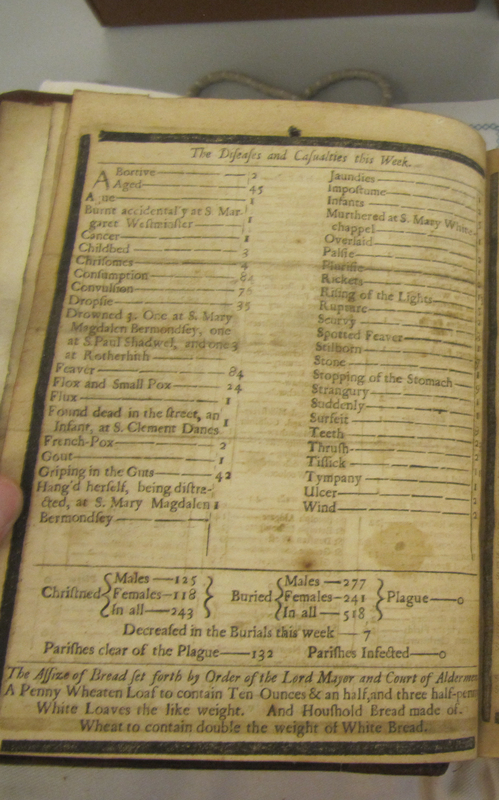 The Diseases and Casualties this Week.
Abortive 2
Aged 45
Ague 1
Burnt accidentally at S. Mar-
garet Westminster 1
Cancer 1
Childbed 3
Chrisomes 4
Consumption 82
Convulsion
Dropsie 35
Drowned 3. One at S. Mary
Magdalen Bermondsey, one
at S. Paul Shadwel, and one 3
at Rotherhith
Feaver 84
Flox and Small Pox 24
Flux 1
Found dead in the street, an
Infant, at S. Clement Danes 1
French-Pox 2
Gout 1
Griping in the Guts 42
Hang'd herself, being distra-
cted, at S. Mary Magdalen 1
Bermondsey
Jaundies
Impostume
Infants
Murthered at S. Mary White-
chappel
Overlaid
Palsie
Plurisie
Rickets
Rising of the Lights
Rupture
Scurvy
Spotted Feaver
Stilborn
Stone
Stopping of the Stomach
Strangury
Suddenly
Surfeit
Teeth
Thrush
Tissick
Tympany
Ulcer
Wind
Christned { Males 125 Females 118 In all 243 } Buried { Males 277 Females 241 In all 518 } Plague 0
Decreased in the Burials this week 7
Parishes clear of the Plague 132 Parishes Infected 0
The Assize of Bread set forth by Order of the Lord Mayor and Court of Aldermen
A Penny Wheaten Loaf to contain Ten Ounces & an half, and three half-penny
White Loaves the like weight. And Houshold Bread made of
Wheat to contain double the weight of White Bread.